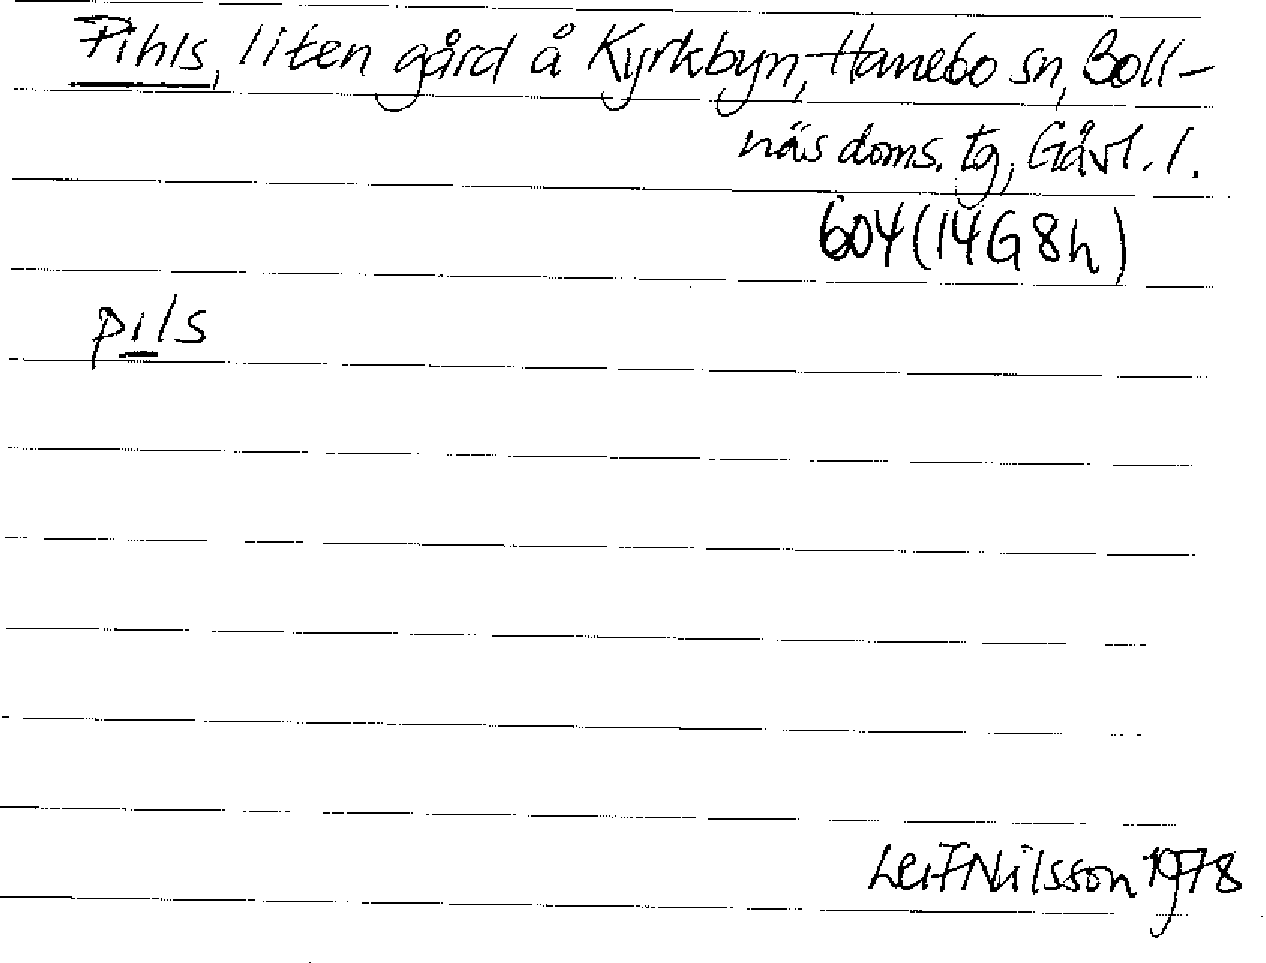 Pihls, liten gård å Kyrkbyn, Hanebo sn, Boll-
näs doms. tg, Gävl. l.
604 (14G 8h)
pils
Leif Nilsson 1978